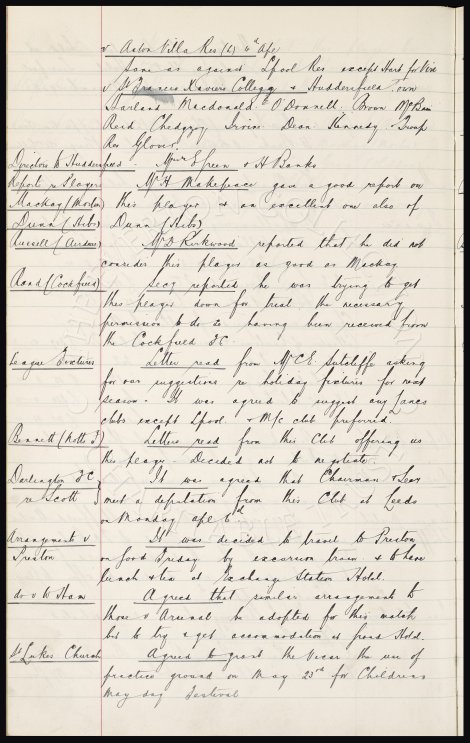 v Aston Villa Res (L) 4th Apl
Same as against Lpool Res except Hart for Vine
v St Francis Xaviers College & Huddersfield own
Garland Macdonald O'Donnell. Brown McBain
Reid Chedgzoy Irvine Dean Kennedy & Troup
Res Glover.
Directors to Huddersfield Messrs Green & H Banks
Report re Players Mr H Makepeace gave a good report on
Mackay (Morton) this player & an excellent one also of
Dunn (Hibs) Dunn (Hibs)
Russell (Airdrie) Mr D Kirkwood reported that he did not
consider this player as good as Mackay
Rand (Cockfield) Secy reported he was trying to get
this player down for trial the necessary
permission to do so having been received from
the Cockfield F.C.
League Fixtures Letter read from Mr C E Sutcliffe asking
for our suggestions re holiday fixtures for next
season. It was agreed to suggest any Lancs
clubs except Lpool. & M/c club preferred.
Bennett (Notts F) Letter read from this Club offering us
this player. Decided not to negotiate.
Darlington F.C. It was agreed that Chairman & Secy
re Scott meet a deputation from this Club at Leeds
on Monday Apl 6th
Arrangements v It was decided to travel to Preston
Preston on Good Friday by excursion train & to have
lunch & tea at Exchange Station Hotel.
do v W Ham Agreed that similar arrangement to
those v Arsenal be adopted for this match
but to try & get accommodation at Hotel.
St Lukes Church Agreed to grant the Vicar the use of
practice ground on May 23rd for Childrens
May day Festival